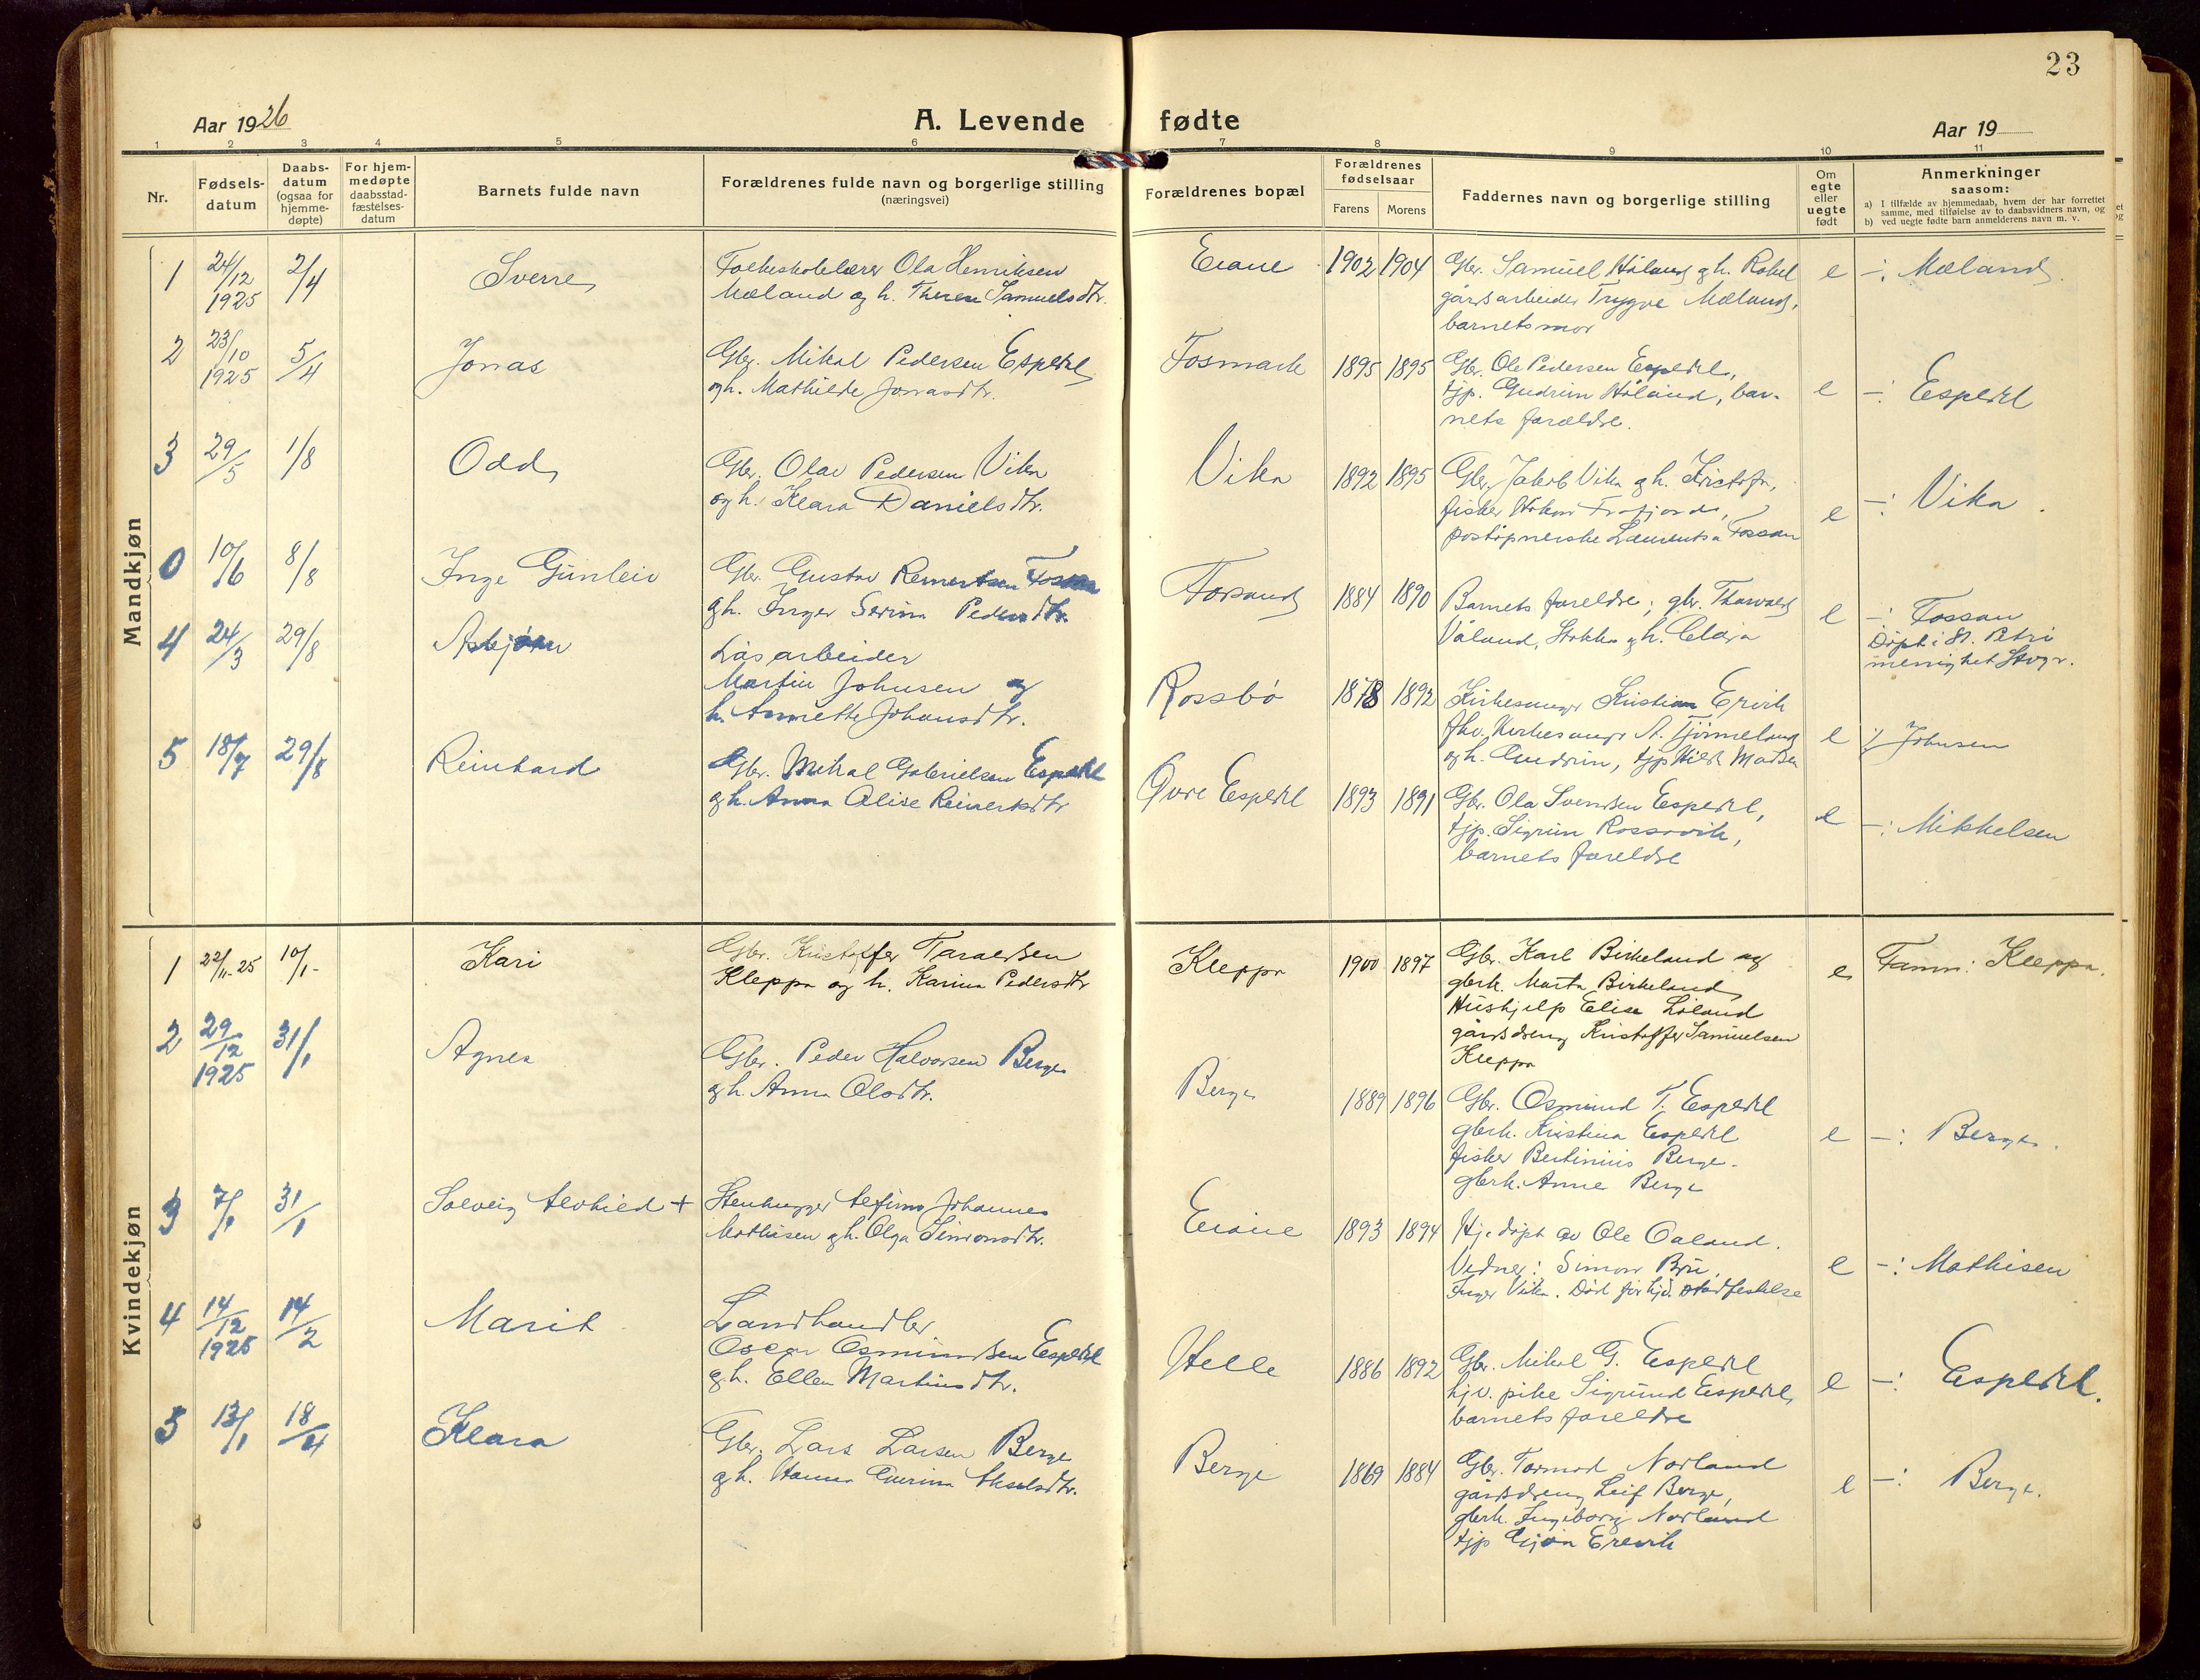 23
Aar 1926
A. Levende fødte
Aar 19
1 2 3 4 5 6 7 8 9 10 11
Nr.
Fødsels-
datum
Daabs-
datum
(ogsaa for
hjemme-
døpte)
For hjem-
medøpte
daabsstad-
fæstelses-
datum
Barnets fulde navn
Forældrenes fulde navn og borgerlige stilling
(næringsvei)
Forældrenes bopæl
Forældrenes
fødselsaar
Farens Morens
Faddernes navn og borgerlige stilling
Om
egte
eller
uegte
født
Anmerkninger
saasom:
a) I tilfælde av hjemmedaab, hvem der har forrettet
samme, med tilføielse av to daabsvidners navn, og
b) ved uegte fødte barn anmelderens navn m. v.
Mandkjøn
1 24/12 1925 2/4 Sverre
Folkeskolelærer Ola Henriksen
Mæland og h. Therese Samuelsdtr.
Eiane 1902 1904
Gbr. Samuel Håland og h. Rakel
gårdsarbeider Trygve Mæland,
barnets mor
e -: Mæland.
2 23/10 1925 5/4 Jonas
Gbr. Mikal Pedersen Espedal
og h. Mathilde Jonasdtr.
Fosmark 1895 1895
Gbr. Ole Pedersen Espedal,
tjp. Gudrun Håland, bar-
nets forældre.
e -: Espedal
3 29/5 1/8 Odd
Gbr. Olav Pedersen Vika
og h. Klara Danielsdtr.
Vika 1892 1895
Gbr. Jakob Vika og h. Kristofa,
fisker Håkon Frafjord,
poståpnerske Laurentsa Fossan
e -: Vika.
0 10/6 8/8 Inge Gunleiv
Gbr. Gustav Reinertsen Fossan
og h. Inger Serina Pedersdtr.
Forsand 1884 1890
Barnets foreldre; gbr. Thorvald
Våland, Stokka og h. Clara
e -: Fossan
Døpt i St. Petri
menighet Stvgr.
4 24/3 29/8 Asbjørn
Låsarbeider
Martin Johnsen og
h. Annette Johansdtr.
Rossbø 1878 1892
Kirkesanger Kristian Ervik
fhv. kirkesangr A. Tjørmeland
og h. Gudrun, tjp Hild Madsen
e -: Johnsen
5 18/7 29/8 Reinhard
Gbr. Mikal Gabrielsen Espedal
og h. Anna Alise Reinertsdtr
Øvre Espedal 1893 1891
Gbr. Ola Svendsen Espedal,
tjp. Sigrun Rossavik,
barnets foreldre
e -: Mikkelsen
Kvindekjøn
1 22/11-25 10/1- Kari
Gbr. Kristoffer Taraldsen
Kleppa og h. Karina Pedersdtr
Kleppa 1900 1897
Gbr. Karl Birkeland og
gbrk. Marta Birkeland
Hushjelp Elisa Løland
gårdsdreng Kristoffer Samuelsen
Kleppa
e Famn: Kleppa.
2 29/12 1925 31/1 Agnes
Gbr. Peder Halvorsen Berge
og h. Anna Olsdtr.
Berge 1889 1896
Gbr. Osmund T. Espedal
gbrk. Kristina Espedal
fisker Bertinius Berge.
gbrk. Anne Berge
e -: Berge.
3 7/1 31/1 Solveig Alvhild +
Stenhugger Alfinn Johannes
Mathisen og h. Olga Simonsdtr.
Eiane 1893 1894
Hj. døpt av Ole Oaland.
Vidner: Simon Bru,
Inger Vika. Død før hjd. stadfestelse
e -: Mathisen
4 14/12 1925 14/2 Marit
Landhandler
Oscar Osmundsen Espedal
og h. Ellen Martinsdtr.
Helle 1886 1892
Gbr. Mikal G. Espedal
hjv. pike Sigrund Espedal,
barnets foreldre
e -: Espedal.
5 13/1 18/4 Klara
Gbr. Lars Larsen Berge
og h. Hanna Guerina Akselsdtr.
Berge 1869 1884
Gbr. Tormod Norland
gårdsdreng Leif Berge,
gbrk. Ingeborg Norland
tjp Gjøa Erevik
e -: Berge.